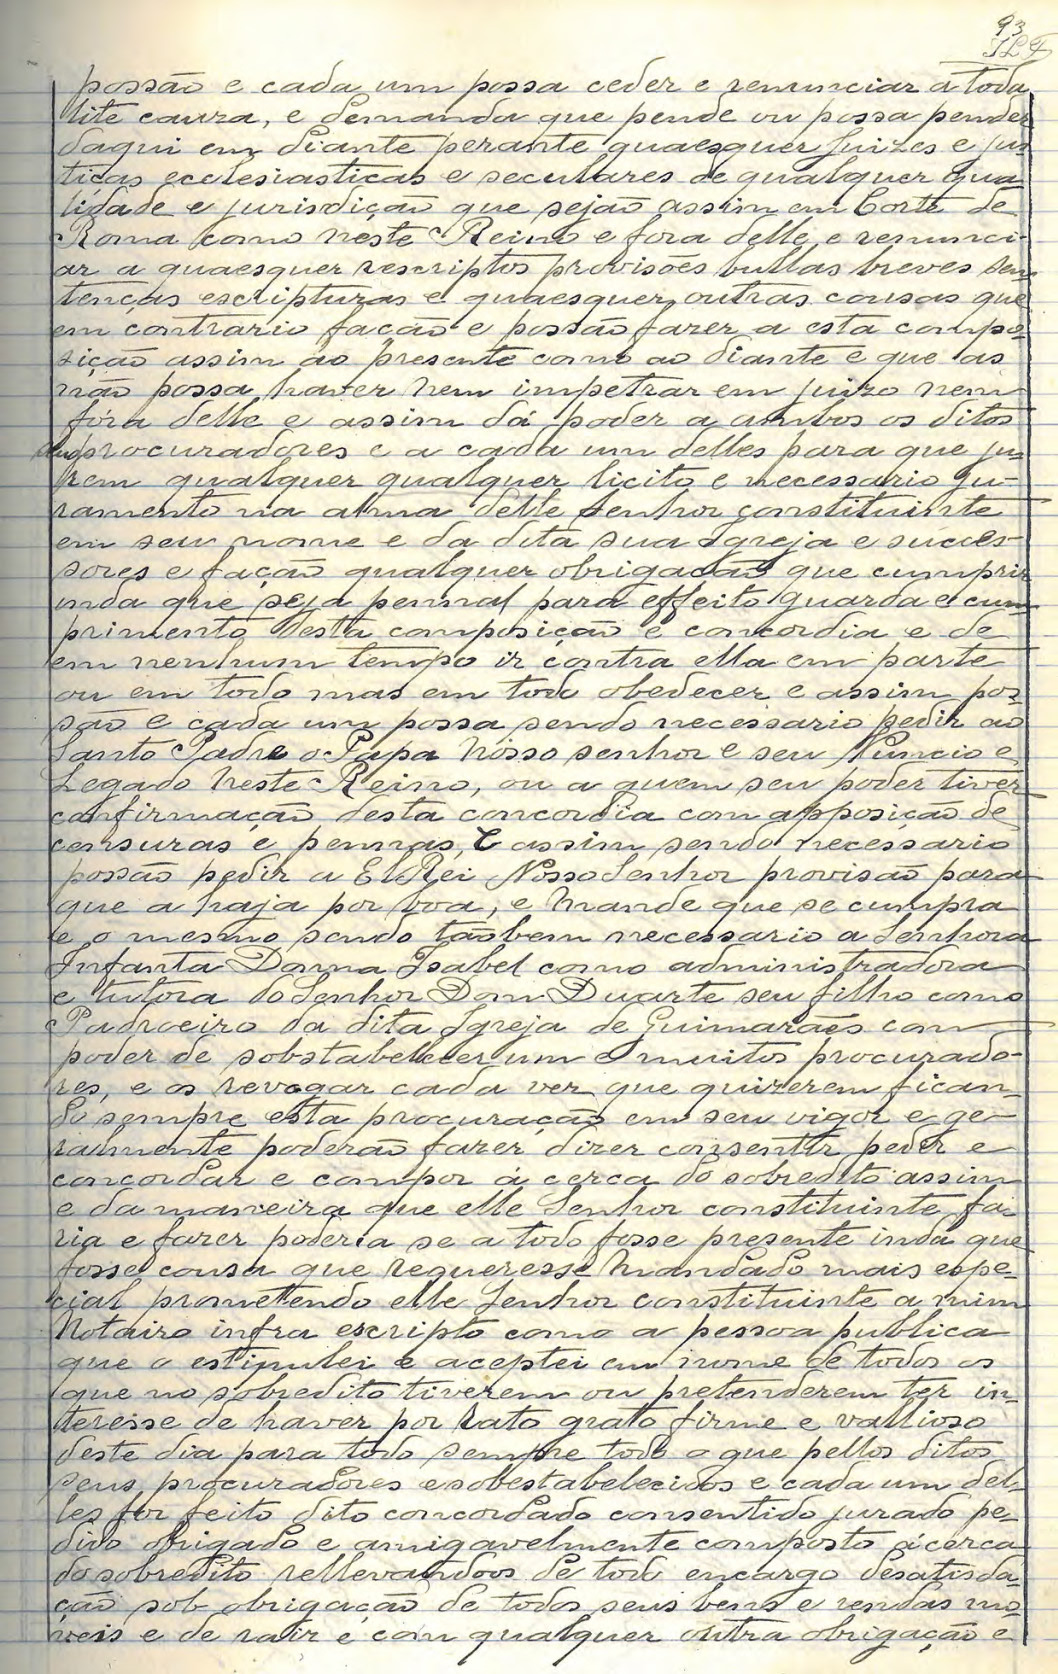 93
possão e cada um possa ceder e renunciar a toda
lite cauza, e demanda que pende ou possa pender
daqui em diante perante quaesquer Juizes e jus-
tiças ecclesiasticas e seculares de qualquer qua
lidade e jurisdição que sejão assim em Corte de
Roma como neste Reino e fora delle, e renunci-
ar a quaesquer rescriptos provisões bullas breves sen
tenças escripturas e quaesquer outras cousas que
em contrario fação e possão fazer a esta compo-
sição assim ao presente como ao diante e que as
não possa haver nem impetrar em juizo nem
fóra delle e assim dá poder a ambos os ditos
seus procuradores e a cada um delles para que ju-
rem qualquer qualquer licito e necessario ju-
ramento na alma delle Senhor constituinte
em seu nome e da dita sua Igreja e succes-
sores e fação qualquer obrigacão que cumprir
inda que seja pennal para effeito guarda e cum
primento desta composição e concordia e de
em nenhum tempo ir contra ella em parte
ou em todo mas em todo obedecer e assim pos-
são e cada um possa sendo necessario pedir ao
Santo Padre o Papa Nosso senhor e seu Nuncio e
Legado neste Reino, ou a quem seu poder tiver
confirmação desta concordia com apposição de
censuras e pennas, E assim sendo necessario
possão pedir a El Rei Nosso Senhor provisão para
que a haja por boa, e mande que se cumpra
e o mesmo sendo tãobem necessario a Senhora
Infanta Donna Isabel como administradora
e tutora do Senhor Dom Duarte seu filho como
Padroeiro da dita Igreja de Guimarães com
poder de sobstabelecer um e muitos procurado-
res, e os revogar cada vez que quizerem fican-
do sempre esta procuração em seu vigor e ge-
ralmente poderão fazer dizer consentir peder e
concordar e compor á cerca do sobredito assim
e da maneira que elle Senhor constituinte fa-
ria e fazer poderia se a todo fosse presente inda que
fosse cousa que requeresse mandado mais espe-
cial promettendo elle Senhor constituinte a mim
Notairo infra escripto como a pessoa publica
que o estipulei e aceptei em nome de todos os
que no sobredito tiverem ou pretenderem ter in-
teresse de haver por rato grato firme e vallioso
deste dia para todo sempre todo o que pellos ditos
seus procuradores e sobestabelecidos e cada um del-
les for feito dito concordado consentido jurado pe-
dido obrigado e amigavelmente composto ácerca
do sobredito rellevandoos de todo encargo desatisda-
ção sob obrigação de todos seus bens e rendas mo-
veis e de raiz e com qualquer outra obrigação e